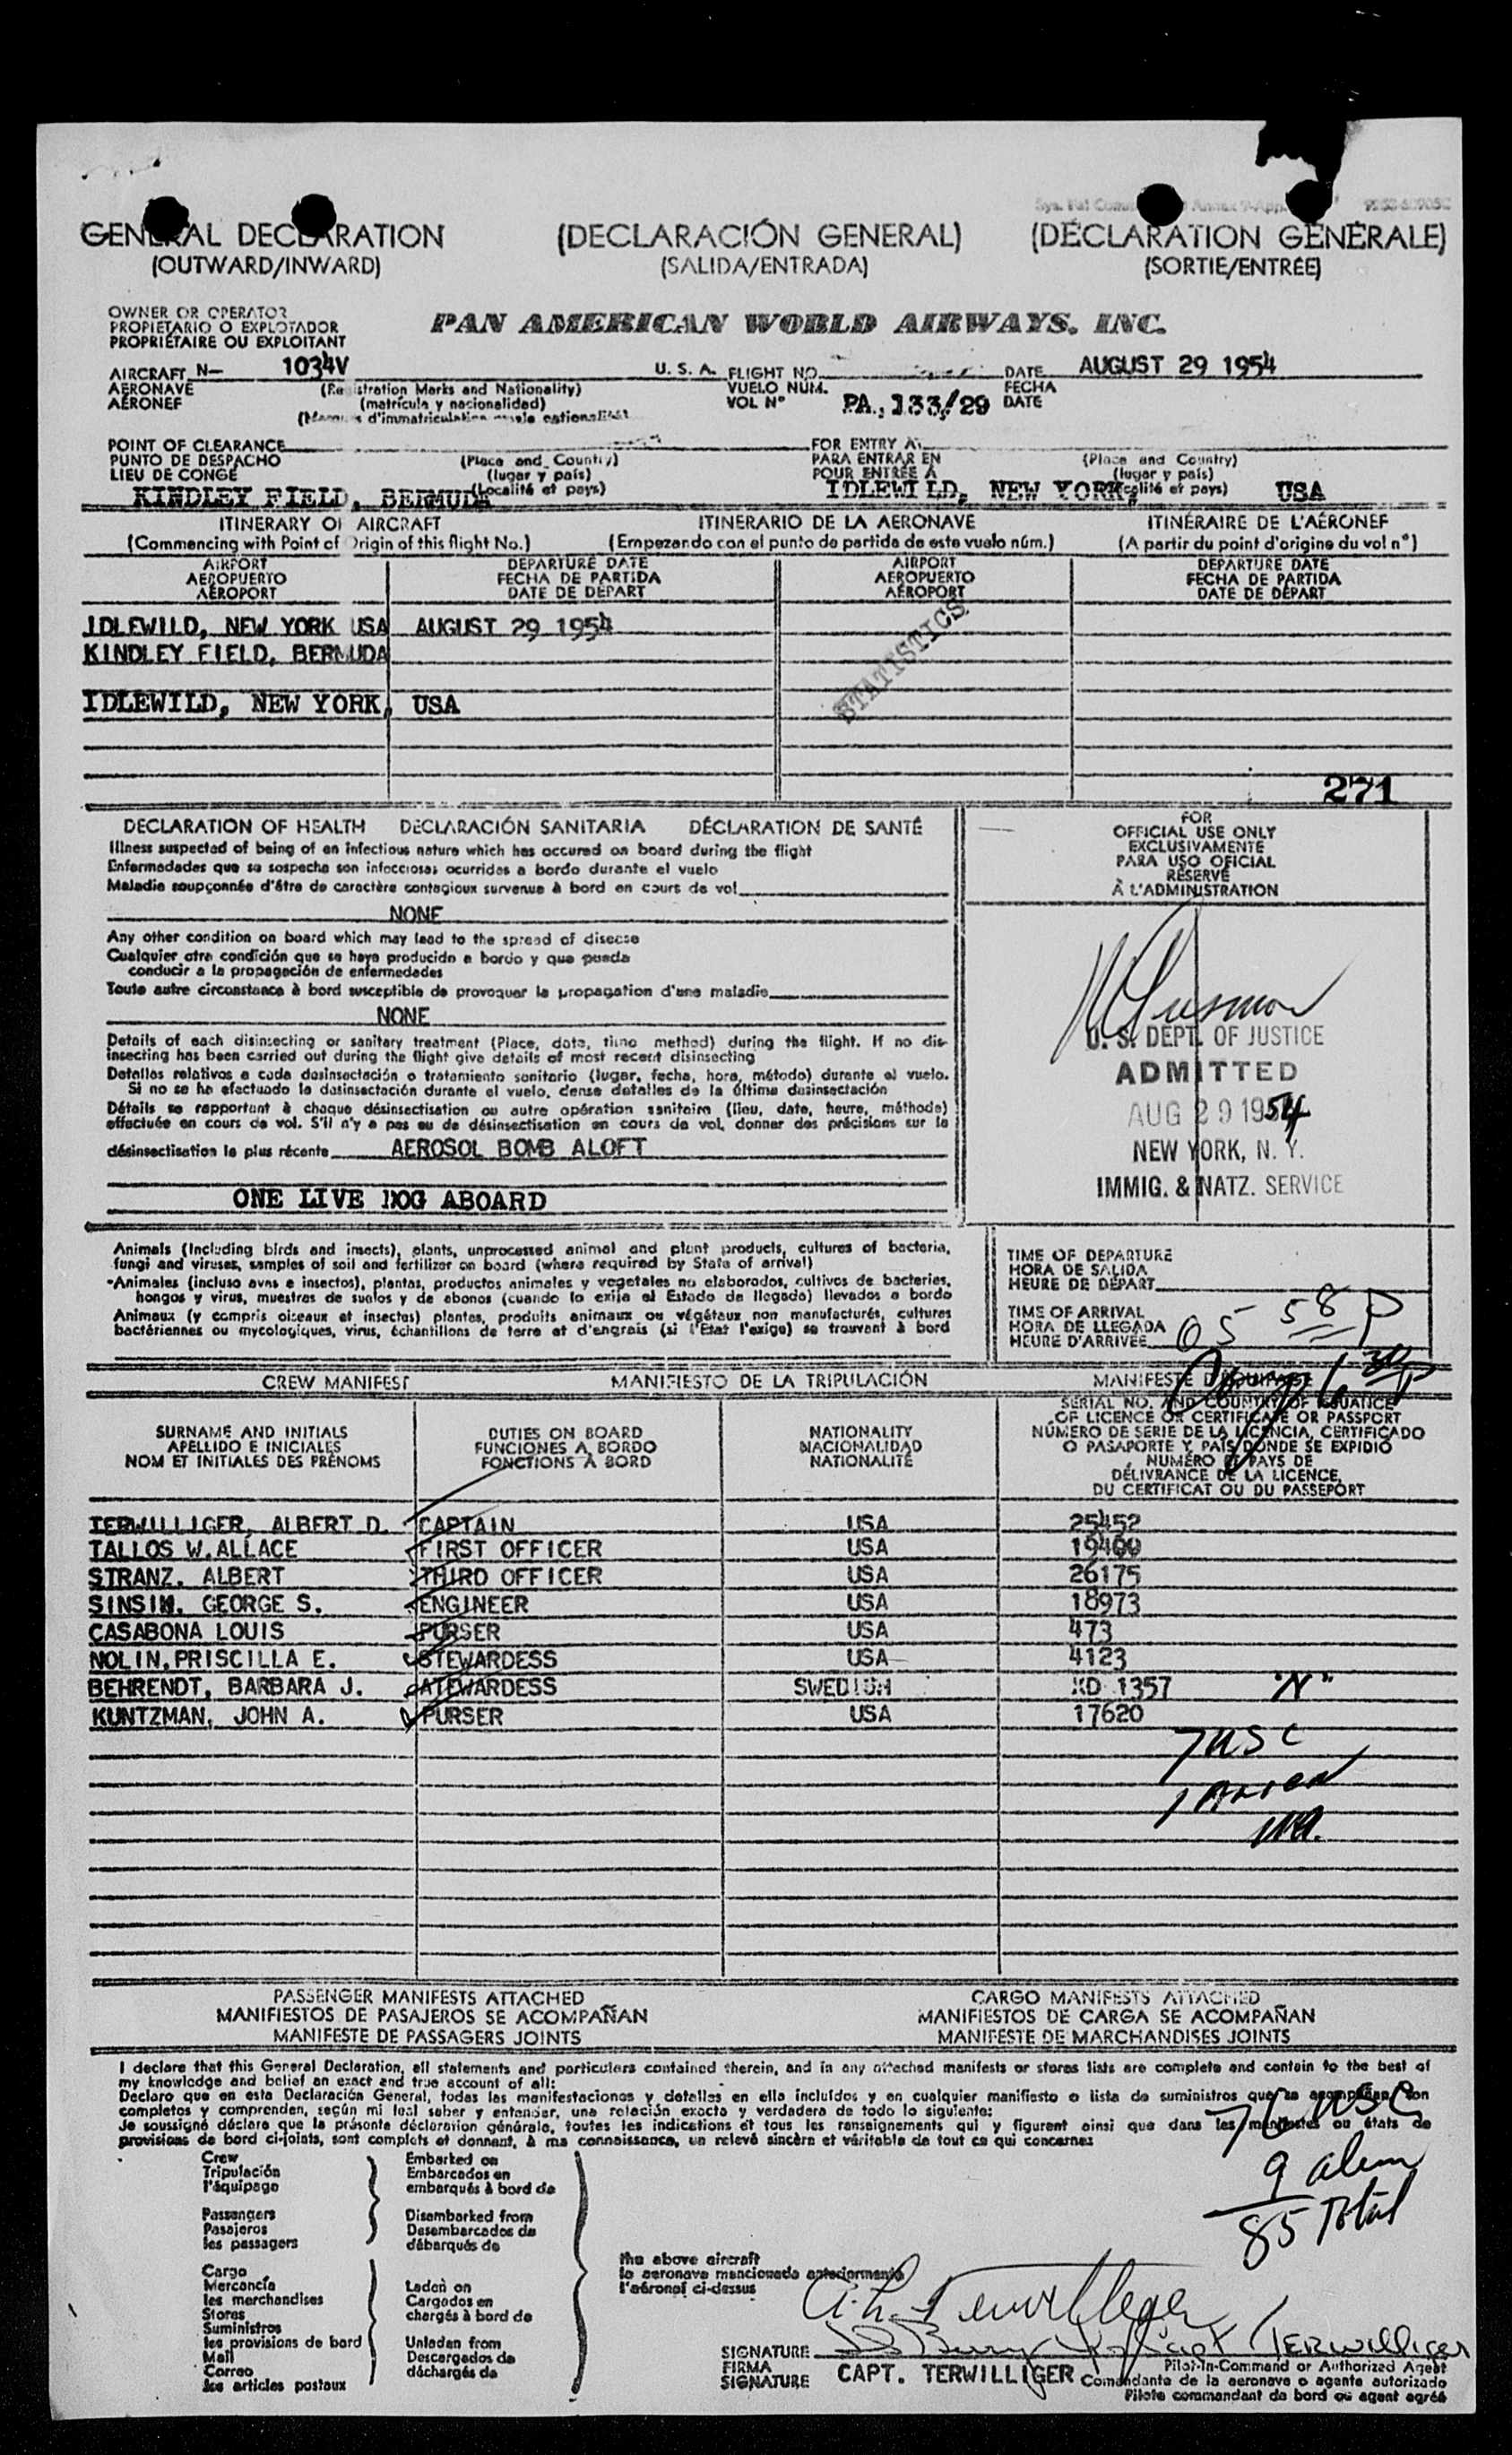 GENERAL DECLARATION (DECLARACIÓN GENERAL) (DÉCLARATION GENÉRALE)
(OUTWARD/INWARD) (SALIDA/ENTRADA) (SORTIE/ENTRÉE)
OWNER OR OPERATOR
PROPIETARIO O EXPLOTADOR
PROPRIÉTAIRE OU EXPLOITANT
PAN AMERICAN WORLD AIRWAYS, INC.
AIRCRAFT N— 1034V U. S. A. FLIGHT NO. DATE AUGUST 29 1954
AERONAVE (Registration Marks and Nationality) VUELO NÚM. FECHA
AÉRONEF (matrícula y nacionalidad) VOL N° PA. 133/29 DATE
d'immatriculation
POINT OF CLEARANCE FOR ENTRY AT
PUNTO DE DESPACHO (Place and Country) PARA ENTRAR EN (Place and Country)
LIEU DE CONGÉ (lugar y país) POUR ENTRÉE À (lugar y país)
KINDLEY FIELD, BERMUDA (Localité et pays) IDLEWILD, NEW YORK, (Localité et pays) USA
ITINERARY OF AIRCRAFT ITINERARIO DE LA AERONAVE ITINÉRAIRE DE L'AÉRONEF
(Commencing with Point of Origin of this flight No.) (Empezando con el punto de partida de este vuelo núm.) (A partir du point d'origine du vol n°)
AIRPORT DEPARTURE DATE AIRPORT DEPARTURE DATE
AEROPUERTO FECHA DE PARTIDA AEROPUERTO FECHA DE PARTIDA
AÉROPORT DATE DE DÉPART AÉROPORT DATE DE DÉPART
IDLEWILD, NEW YORK USA AUGUST 29 1954
KINDLEY FIELD, BERMUDA
IDLEWILD, NEW YORK, USA
STATISTICS
271
DECLARATION OF HEALTH DECLARACIÓN SANITARIA DÉCLARATION DE SANTÉ
Illness suspected of being of an infectious nature which has occured on board during the flight
Enfermedades que se sospecha son infecciosas ocurridas a bordo durante el vuelo
Maladie soupçonnée d'être de caractère contagioux survenue à bord en cours de vol
NONE
Any other condition on board which may lead to the spread of disease
Cualquier otra condición que se haya producido a bordo y que pueda
conducir a la propagación de enfermedades
Toute autre circonstance à bord susceptible de provoquer la propagation d'une maladie
NONE
Details of each disinsecting or sanitary treatment (Place, date, time method) during the flight. If no dis-
insecting has been carried out during the flight give details of most recent disinsecting
Detalles relativos a cada desinsectación o tratamiento sanitario (lugar, fecha, hora, método) durante el vuelo.
Si no se ha efectuado la desinsectación durante el vuelo, dense detalles de la última desinsectación
Détails se rapportant à chaque désinsectisation ou autre opération sanitaire (lieu, date, heure, méthode)
effectuée en cours de vol. S'il n'y a pas eu de désinsectisation en cours de vol, donner des précisions sur la
désinsectisation la plus récente AEROSOL BOMB ALOFT
ONE LIVE DOG ABOARD
FOR
OFFICIAL USE ONLY
EXCLUSIVAMENTE
PARA USO OFICIAL
RÉSERVÉ
À L'ADMINISTRATION
U. S. DEPT. OF JUSTICE
ADMITTED
AUG 29 1954
NEW YORK, N. Y.
IMMIG. & NATZ. SERVICE
Animals (Including birds and insects), plants, unprocessed animal and plant products, cultures of bacteria,
fungi and viruses, samples of soil and fertilizer on board (where required by State of arrival)
Animales (incluso aves e insectos), plantas, productos animales y vegetales no elaborados, cultivos de bacteries,
hongos y virus, muestras de suelos y de abonos (cuando lo exija el Estado de llegada) llevados a bordo
Animaux (y compris oiseaux et insectes) plantes, produits animaux ou végétaux non manufacturés, cultures
bactériennes ou mycologiques, virus, échantillons de terre et d'engrais (si l'Etat l'exige) se trouvant à bord
TIME OF DEPARTURE
HORA DE SALIDA
HEURE DE DÉPART
TIME OF ARRIVAL
HORA DE LLEGADA
HEURE D'ARRIVÉE 05 58 P
CREW MANIFEST MANIFIESTO DE LA TRIPULACIÓN MANIFESTE D'ÉQUIPAGE
SURNAME AND INITIALS
APELLIDO E INICIALES
NOM ET INITIALES DES PRÉNOMS
DUTIES ON BOARD
FUNCIONES A BORDO
FONCTIONS À BORD
NATIONALITY
NACIONALIDAD
NATIONALITÉ
SERIAL NO. AND COUNTRY OF ISSUANCE
OF LICENCE OR CERTIFICATE OR PASSPORT
NÚMERO DE SERIE DE LA LICENCIA, CERTIFICADO
O PASAPORTE Y PAÍS DONDE SE EXPIDIÓ
NUMÉRO ET PAYS DE
DÉLIVRANCE DE LA LICENCE,
DU CERTIFICAT OU DU PASSEPORT
TERWILLIGER, ALBERT D. CAPTAIN USA 25452
TALLOS W.ALLACE FIRST OFFICER USA 19400
STRANZ, ALBERT THIRD OFFICER USA 26175
SINSIN, GEORGE S. ENGINEER USA 18973
CASABONA LOUIS PURSER USA 473
NOLIN,PRISCILLA E. STEWARDESS USA 4123
BEHRENDT, BARBARA J. ATEWARDESS SWEDISH XD 1357 "N"
KUNTZMAN, JOHN A. PURSER USA 17620
7 USC
1 Alien
PASSENGER MANIFESTS ATTACHED CARGO MANIFESTS ATTACHED
MANIFIESTOS DE PASAJEROS SE ACOMPAÑAN MANIFIESTOS DE CARGA SE ACOMPAÑAN
MANIFESTE DE PASSAGERS JOINTS MANIFESTE DE MARCHANDISES JOINTS
I declare that this General Declaration, all statements and particulars contained therein, and in any attached manifests or stores lists are complete and contain to the best of
my knowledge and belief an exact and true account of all:
Declaro que en esta Declaración General, todas las manifestaciones y detalles en ella incluídos y en cualquier manifiesto o lista de suministros que se acompañan son
completos y comprenden, según mi leal saber y entender, una relación exacta y verdadera de todo lo siguiente:
Je soussigné déclare que la présente déclaration générale, toutes les indications et tous les renseignements qui y figurent ainsi que dans les manifestes ou états de
provisions de bord ci-joints, sont complets et donnent, à ma connaissance, un relevé sincère et véritable de tout ce qui concerne:
76 USC
9 alien
85 Total
Crew Embarked on
Tripulación Embarcados en
l'équipage embarqués à bord de
Passengers Disembarked from
Pasajeros Desembarcados de
les passagers débarqués de
Cargo
Mercancía Laden on
les merchandises Cargados en
Stores chargés à bord de
Suministros
les provisions de bord Unladen from
Mail Descargados de
Correo déchargés de
les articles postaux
the above aircraft
la aeronave mencionada anteriormente
l'aéronef ci-dessus
SIGNATURE Capt TERWILLIGER
FIRMA CAPT. TERWILLIGER Pilot-In-Command or Authorized Agent
SIGNATURE Comandante de la aeronave o agente autorizado
Pilote commandant de bord ou agent agréé